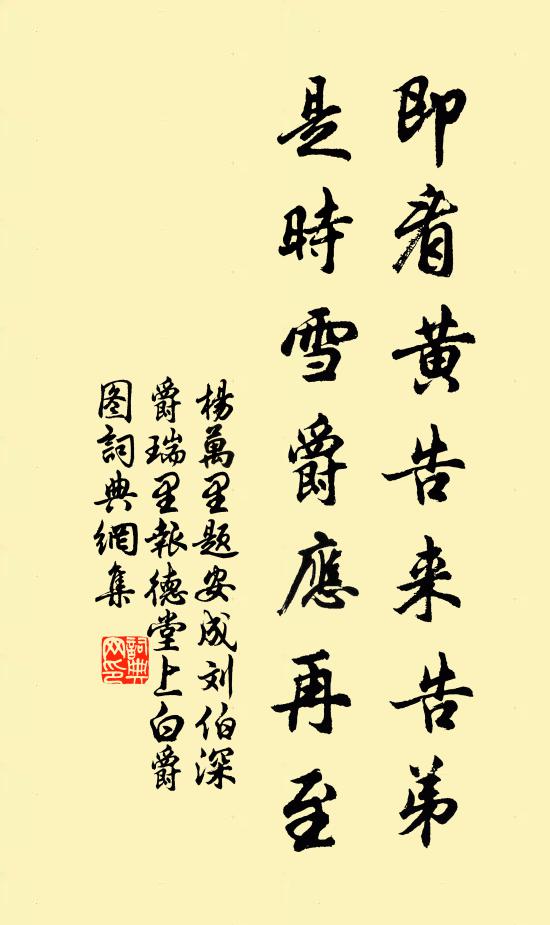 即看黄告来告弟
是時雪爵應再至
楊萬里题安成刘伯深
爵瑞里報德堂上白爵
图詞典網集
詞典
网印